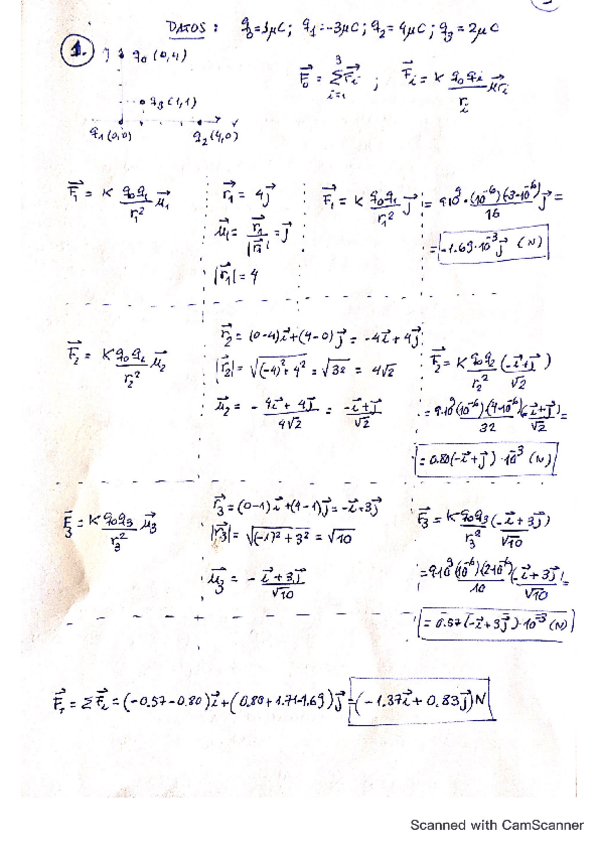 DATOS: q₀=1μC; q₁=-3μC; q₂=4μC; q₃=2μC
1.
y
q₀ (0,4)
q₃(1,1)
q₁(0,0)
q₂(4,0)
F⃗₀ = Σ(i=1→3) F⃗ᵢ ; F⃗ᵢ = K q₀qᵢ/rᵢ² μ⃗ᵣᵢ
F⃗₁ = K q₀q₁/r₁² μ⃗₁
r⃗₁ = 4j⃗
μ⃗₁ = r⃗₁/|r⃗₁| = j⃗
|r⃗₁| = 4
F⃗₁ = K q₀q₁/r₁² j⃗ = 9·10⁹·(10⁻⁶)(-3·10⁻⁶)/16 j⃗ =
= -1.69·10⁻³ j⃗ (N)
F⃗₂ = K q₀q₂/r₂² μ⃗₂
r⃗₂ = (0-4)i⃗+(4-0)j⃗ = -4i⃗+4j⃗
|r⃗₂| = √((-4)²+4²) = √32 = 4√2
μ⃗₂ = - 4i⃗+4j⃗/4√2 = -i⃗+j⃗/√2
F⃗₂ = K q₀q₂/r₂² (-i⃗+j⃗)/√2
= 9·10⁹(10⁻⁶)(4·10⁻⁶)/32 (-i⃗+j⃗)/√2 =
= 0.80(-i⃗+j⃗)·10⁻³ (N)
F⃗₃ = K q₀q₃/r₃² μ⃗₃
r⃗₃ = (0-1)i⃗+(4-1)j⃗ = -i⃗+3j⃗
|r⃗₃| = √((-1)²+3²) = √10
μ⃗₃ = - i⃗+3j⃗/√10
F⃗₃ = K q₀q₃/r₃² (-i⃗+3j⃗)/√10
= 9·10⁹(10⁻⁶)(2·10⁻⁶)/10 (-i⃗+3j⃗)/√10 =
= 0.57(-i⃗+3j⃗)·10⁻³ (N)
F⃗ₜ = ΣF⃗ᵢ = (-0.57-0.80)i⃗+(0.80+1.71-1.69)j⃗ = (-1.37i⃗+0.83j⃗)N
Scanned with CamScanner